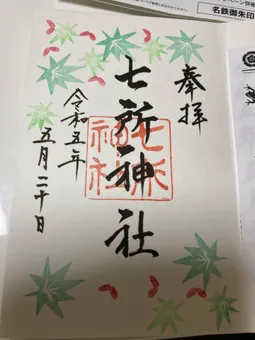 奉拝
七所神社
七所
神社
令和五年
五月二十日
名鉄御朱印